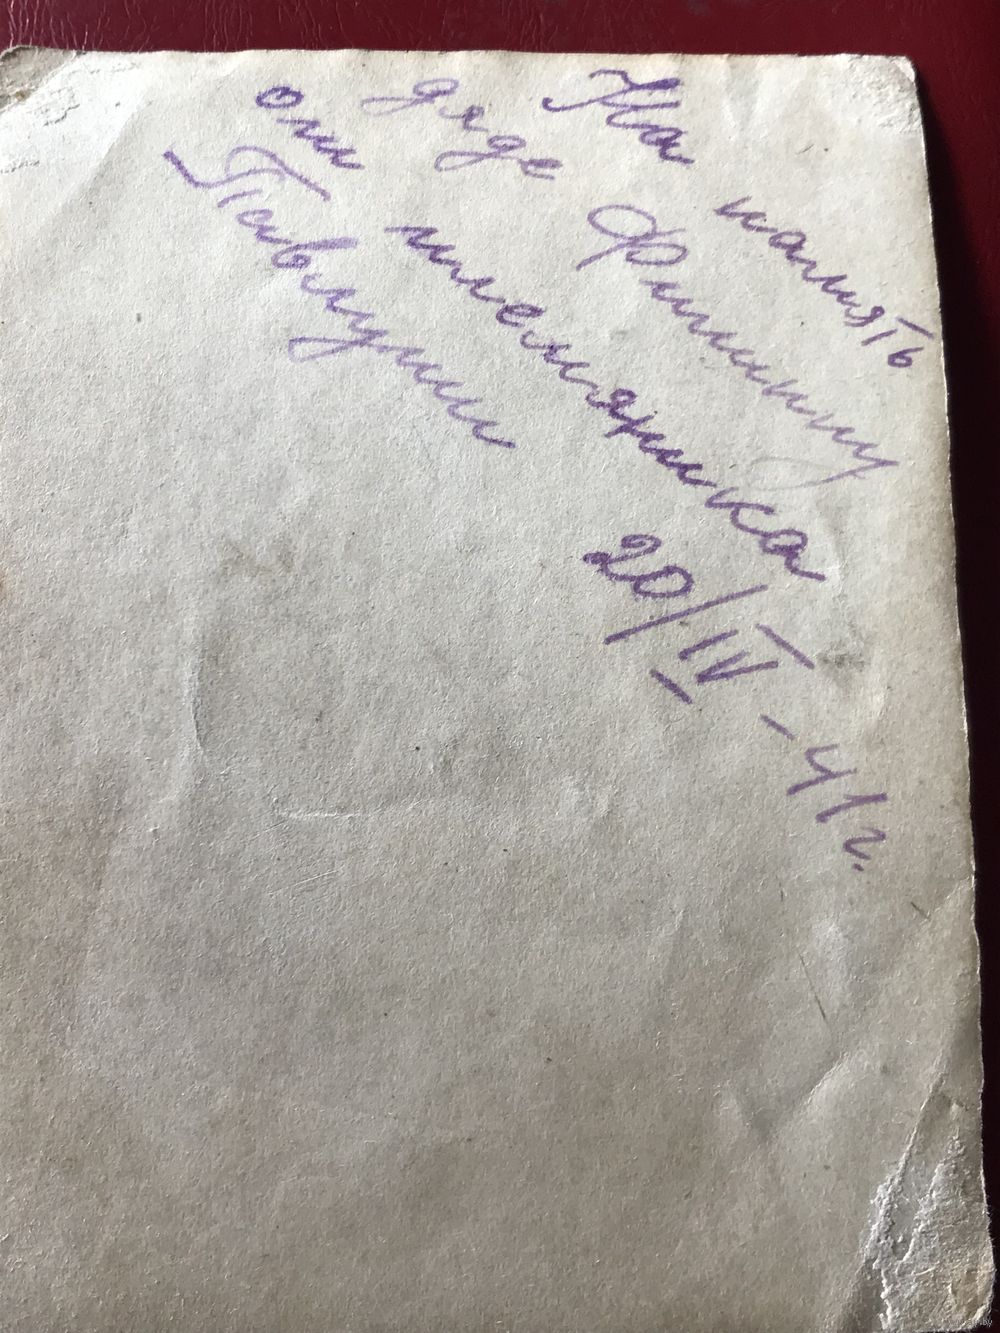 На память
дяде Филиппу
от племянника
Павлуши
20/IV - 41 г.